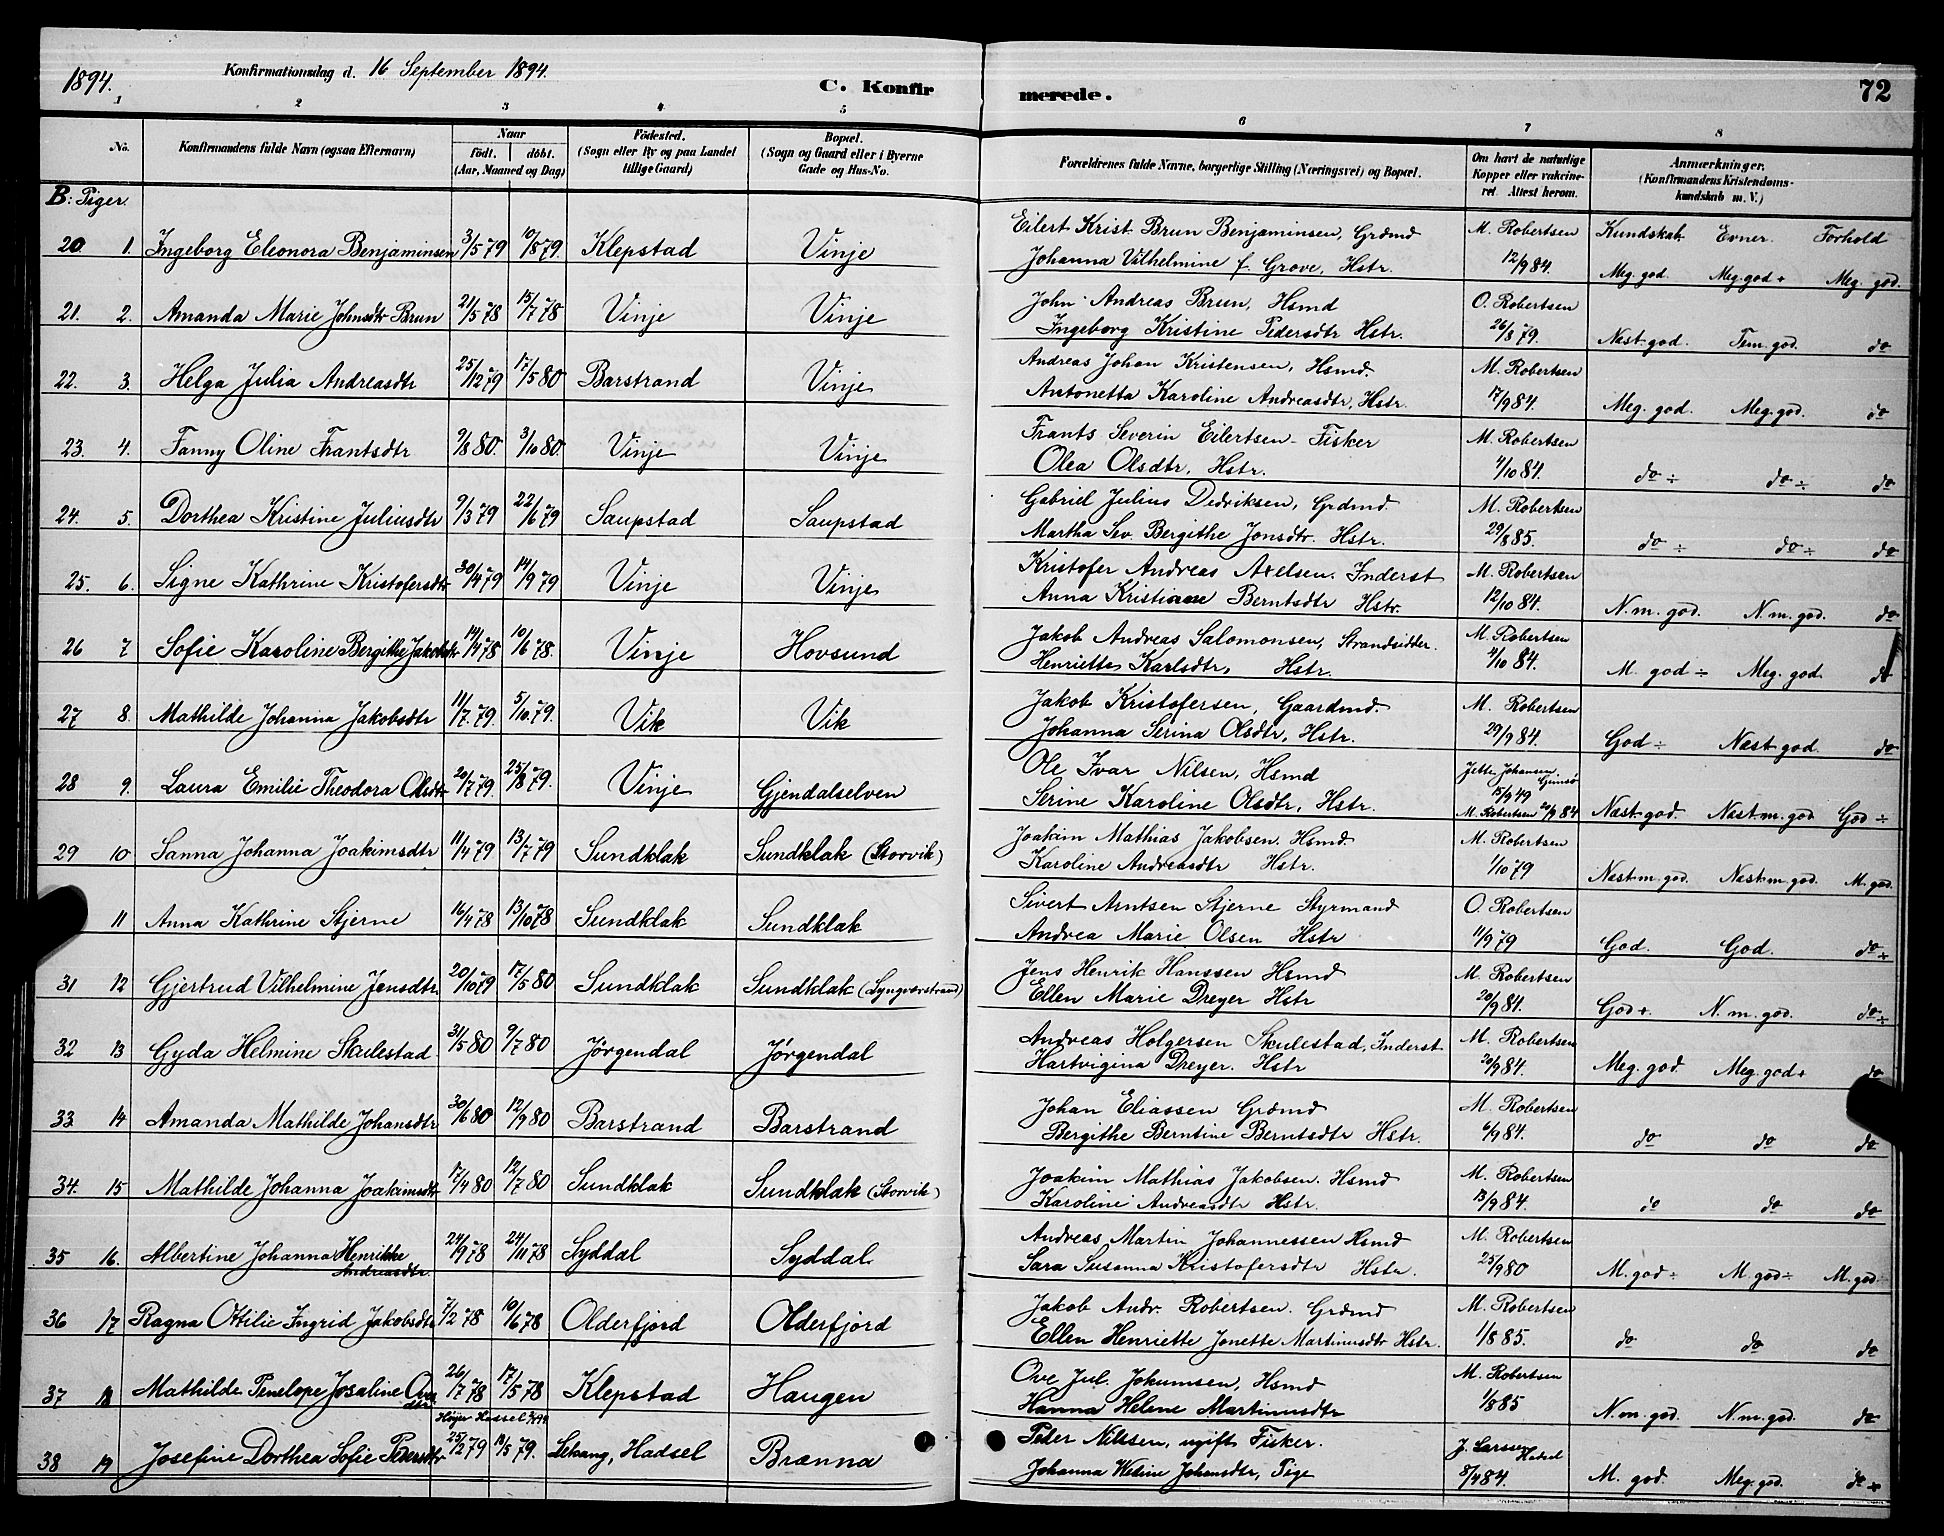 1894. Konfirmationsdag d. 16 September 1894.
C. Konfirmerede. 72
1 2 3 4 5 6 7 8
No. Konfirmandens fulde Navn (ogsaa Efternavn) Naar födt. döbt. (Aar, Maaned og Dag) Födested. (Sogn eller By og paa Landet tillige Gaard) Bopæl. (Sogn og Gaard eller i Byerne Gade og Hus-No. Forældrenes fulde Navne, borgerlige Stilling (Næringsvei) og Bopæl. Om havt de naturlige Kopper eller vakcineret. Attest herom. Anmærkninger. (Konfirmandens Kristendomskundskab m. V.)
B: Piger.
Kundskab Evner. Forhold
20 1. Ingeborg Eleonora Benjaminsen 3/5 79 10/8 79. Klepstad Vinje Eilert Krist Brun Benjaminsen, Grdmd M. Robertsen
Johanna Vilhelmine f. Grove, Hstr. 12/9 84. Meg. god Meg. god + Meg. god.
21. 2. Amanda Marie Johnsdtr Brun 21/5 78 15/7 78 Vinje Vinje John Andreas Brun, Hsmd O. Robertsen
Ingeborg Kristine Pedersdtr Hstr. 26/8 79. Næst. god. Tem. god. do
22. 3. Helga Julia Andreasdtr 25/12 79 17/5 80 Barstrand Vinje Andreas Johan Kristensen, Hsmd. M. Robertsen
Antonetta Karoline Andreasdtr, Hstr. 17/9 84. Meg. god. Meg. god. do
23. 4. Fanny Oline Frantsdtr 9/8 80. 3/10 80. Vinje Vinje Frants Severin Eilertsen - Fisker M. Robertsen
Olea Olsdtr, Hstr. 4/10 84. do ÷ do ÷ do
24. 5. Dorthea Kristine Juliusdtr 9/3 79 22/6 79 Saupstad Saupstad Gabriel Julius Didriksen, Grdmd. M. Robertsen
Martha Sev. Bergithe Jonsdtr. Hstr. 29/8 85. do ÷ do ÷ do
25. 6. Signe Kathrine Kristofersdtr 30/4 79 14/9 79 Vinje Vinje Kristofer Andreas Axelsen. Inderst M. Robertsen
Anna Kristiane Berntsdtr Hstr. 12/10 84. N. m. god. N. m. god. do
26 7 Sofie Karoline Bergithe Jakobsdtr 14/4 78 10/6 78. Vinje Hovsund Jakob Andreas Salomonsen, Strandsidder. M. Robertsen
Henriette Karlsdtr, Hstr. 4/10 84. M. god ÷ Meg. god do
27 8. Mathilde Johanna Jakobsdtr 11/7 79. 5/10 79. Vik Vik Jakob Kristofersen, Gaardmd. M. Robertsen
Johanna Serina Olsdtr, Hstr. 29/9 84. God ÷ Næst god. do
28 9. Laura Emilie Theodora Olsdtr 20/7 79. 25/8 79. Vinje Gjendalselven Ole Ivar Nilsen, Hsmd Jette Johansen Gimsø
Serine Karoline Olsdtr, Hstr. 15/9 49 M. Robertsen 20/9 84 Næst god. Næst m. god God ÷
29 10 Sanna Johanna Joakimsdtr 11/4 79 13/7 79 Sundklak Sundklak (Storvik) Joakim Mathias Jakobsen. Hsmd. M. Robertsen
Karoline Andreasdtr Hstr. 1/10 79 Næst m. god. Næst m. god. M. god.
11 Anna Kathrine Stjerne 16/4 78 13/10 78 Sundklak Sundklak Sivert Arntsen Stjerne Styrmand O. Robertsen
Andrea Marie Olsen Hstr 11/9 79 God. God. do +
31 12 Gjertrud Vilhelmine Jensdtr. 20/10 79 17/5 80 Sundklak Sundklak (Lyngværstrand) Jens Henrik Hanssen Hsmd M. Robertsen
Ellen Marie Dreyer Hstr 20/9 84. God +. N. m. god. do ÷
32 13 Gyda Helmine Skulestad 31/5 80 9/7 80 Jørgendal Jørgendal Andreas Holgersen Skulestad, Inderst M. Robertsen
Hartvigina Dreyer. Hstr 20/9 84. Meg. god Meg. god + do
33 14 Amanda Mathilde Johansdtr 30/6 80 12/9 80 Barstrand Barstrand Johan Eliassen Grdmd M. Robertsen
Bergithe Berntine Berntsdtr Hstr. 6/9 84. do do do
34. 15 Mathilde Johanna Joakimsdtr 17/4 80 12/7 80 Sundklak Sundklak (Storvik) Joakim Mathias Jakobsen. Hsmd M. Robertsen
Karoline Andreasdtr Hstr. 13/9 84. do do do
35 16. Albertine Johanna Henrikke Andreasdtr. 24/9 78 24/11 78 Syddal Syddal Andreas Martin Johannessen Hsmd M. Robertsen
Sara Susanna Kristofersdtr Hstr. 25/9 80 M. god ÷ M. god ÷ M. god.
36 17 Ragna Ottilie Ingrid Jakobsdtr 7/2 78 10/6 78 Olderfjord Olderfjord Jakob Andr. Robertsen. Grdmd M. Robertsen
Ellen Henriette Jonette Martinusdtr Hstr. 1/8 85. do do do
37 18 Mathilde Penelope Josaline Ovesdtr 26/7 78 17/5 78 Klepstad Haugen Ove Jul. Jokumsen, Hsmd M. Robertsen
Hanna Helene Martinusdtr 1/8 85 N. m. god. N. m. god. do
38 19 Josefine Dorthea Sofie Pedersdtr 25/2 79 11/5 79. Hadsel Brænna Peder Nilssen, ugift Fisker. J. Larssen Hadsel
Johanna Johansdtr, Pige 8/9 84. M. god. Meg. god. do +